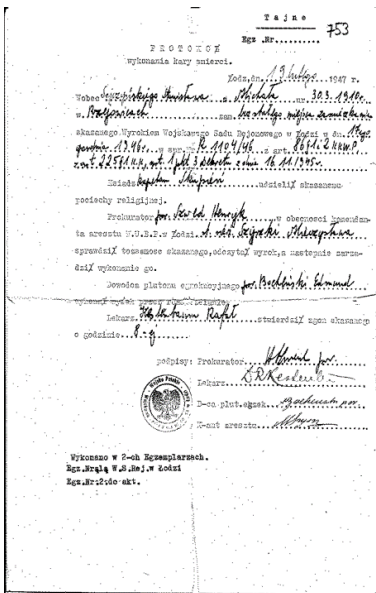 Tajne
753
Egz.Nr..........
PROTOKÓŁ
wykonania kary śmierci.
Łódź,dn. 19 lutego 1947 r.
Wobec Stanisława s. Michała ur 30.3.1910r.
w zam. bez stałego miejsca zamieszkania
skazanego Wyrokiem Wojskowego Sądu Rejonowego w Łodzi z dn. 17go
grudnia 1946. w spr. R 1104/46 z art. 86 § 1 i 2 KKWP
z art 225 § 1 K.K., art. 1 pkt 3 Dekretu z dnia 16 11.1945r.
Ksiądz kapelan udzielił skazanemu
pociechy religijnej.
Prokurator por. Szwed Henryk w obecności komendan-
ta aresztu W.U.B.P w Łodzi Mieczysława
sprawdził tożsamość skazanego, odczytał wyrok, a następnie zarzą-
dził wykonanie go.
Dowódca plutonu egzekucyjnego por. Edmund
wykonał wyrok przez rozstrzelanie.
Lekarz Rafał stwierdził zgon skazanego
o godzinie 8-ej
podpisy: Prokurator
Lekarz
D-ca plut.egzek
K-ant aresztu
Wykonano w 2-ch Egzemplarzach.
Egz.Nr.1.a W.S.Rej.w Łodzi
Egz.Nr:2:do akt.